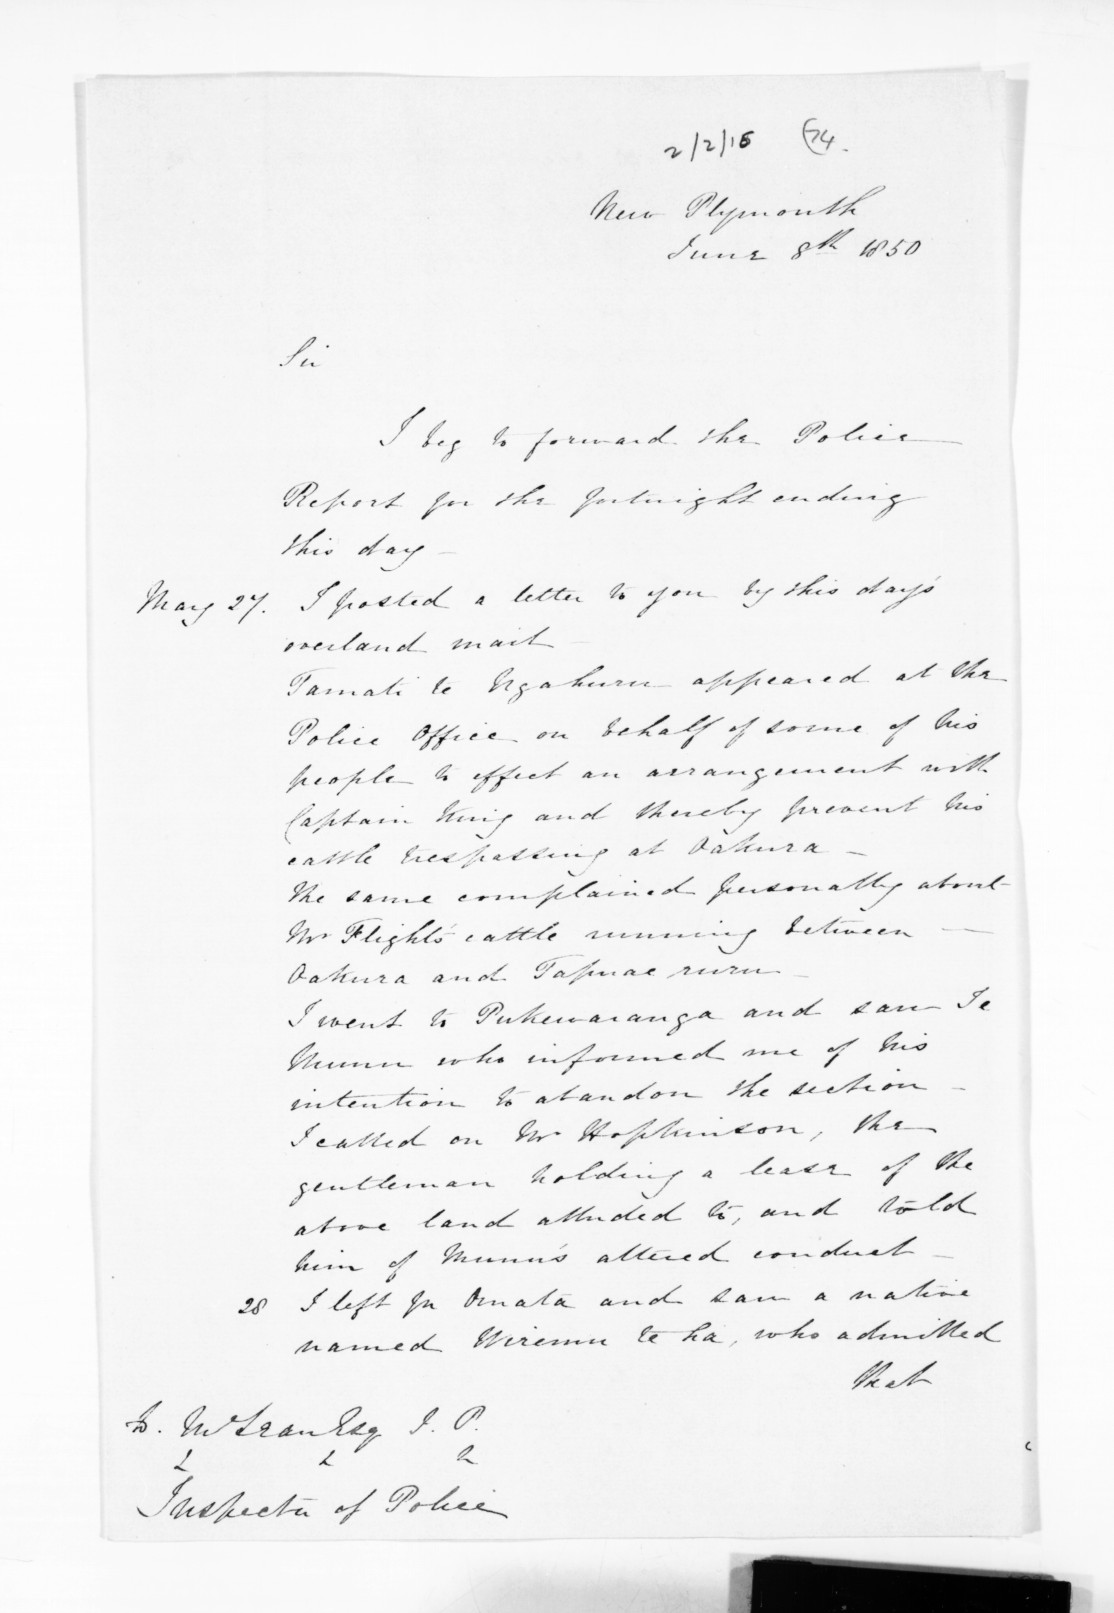 2/2/15 74.
New Plymouth
June 8th 1850
Sir
I beg to forward the Police
Report for the fortnight ending
this day -
May 27. I posted a letter to you by this day's
overland mail -
Tamati te Ngahuru appeared at the
Police Office on behalf of some of his
people to effect an arrangement with
Captain King and thereby prevent his
cattle trespassing at Oakura -
The same complained personally about
Mr Flight's cattle running between -
Oakura and Tapuae ruru -
I went to Pukewaranga and saw Te
Munu who informed me of his
intention to abandon the section -
I called on Mr Hopkinson, the
gentleman holding a lease of the
above land alluded to, and told
him of Munu's altered conduct -
28 I left for Omata and saw a native
named Wiremu te ha, who admitted
that
D. McLean Esq J. P.
Inspector of Police